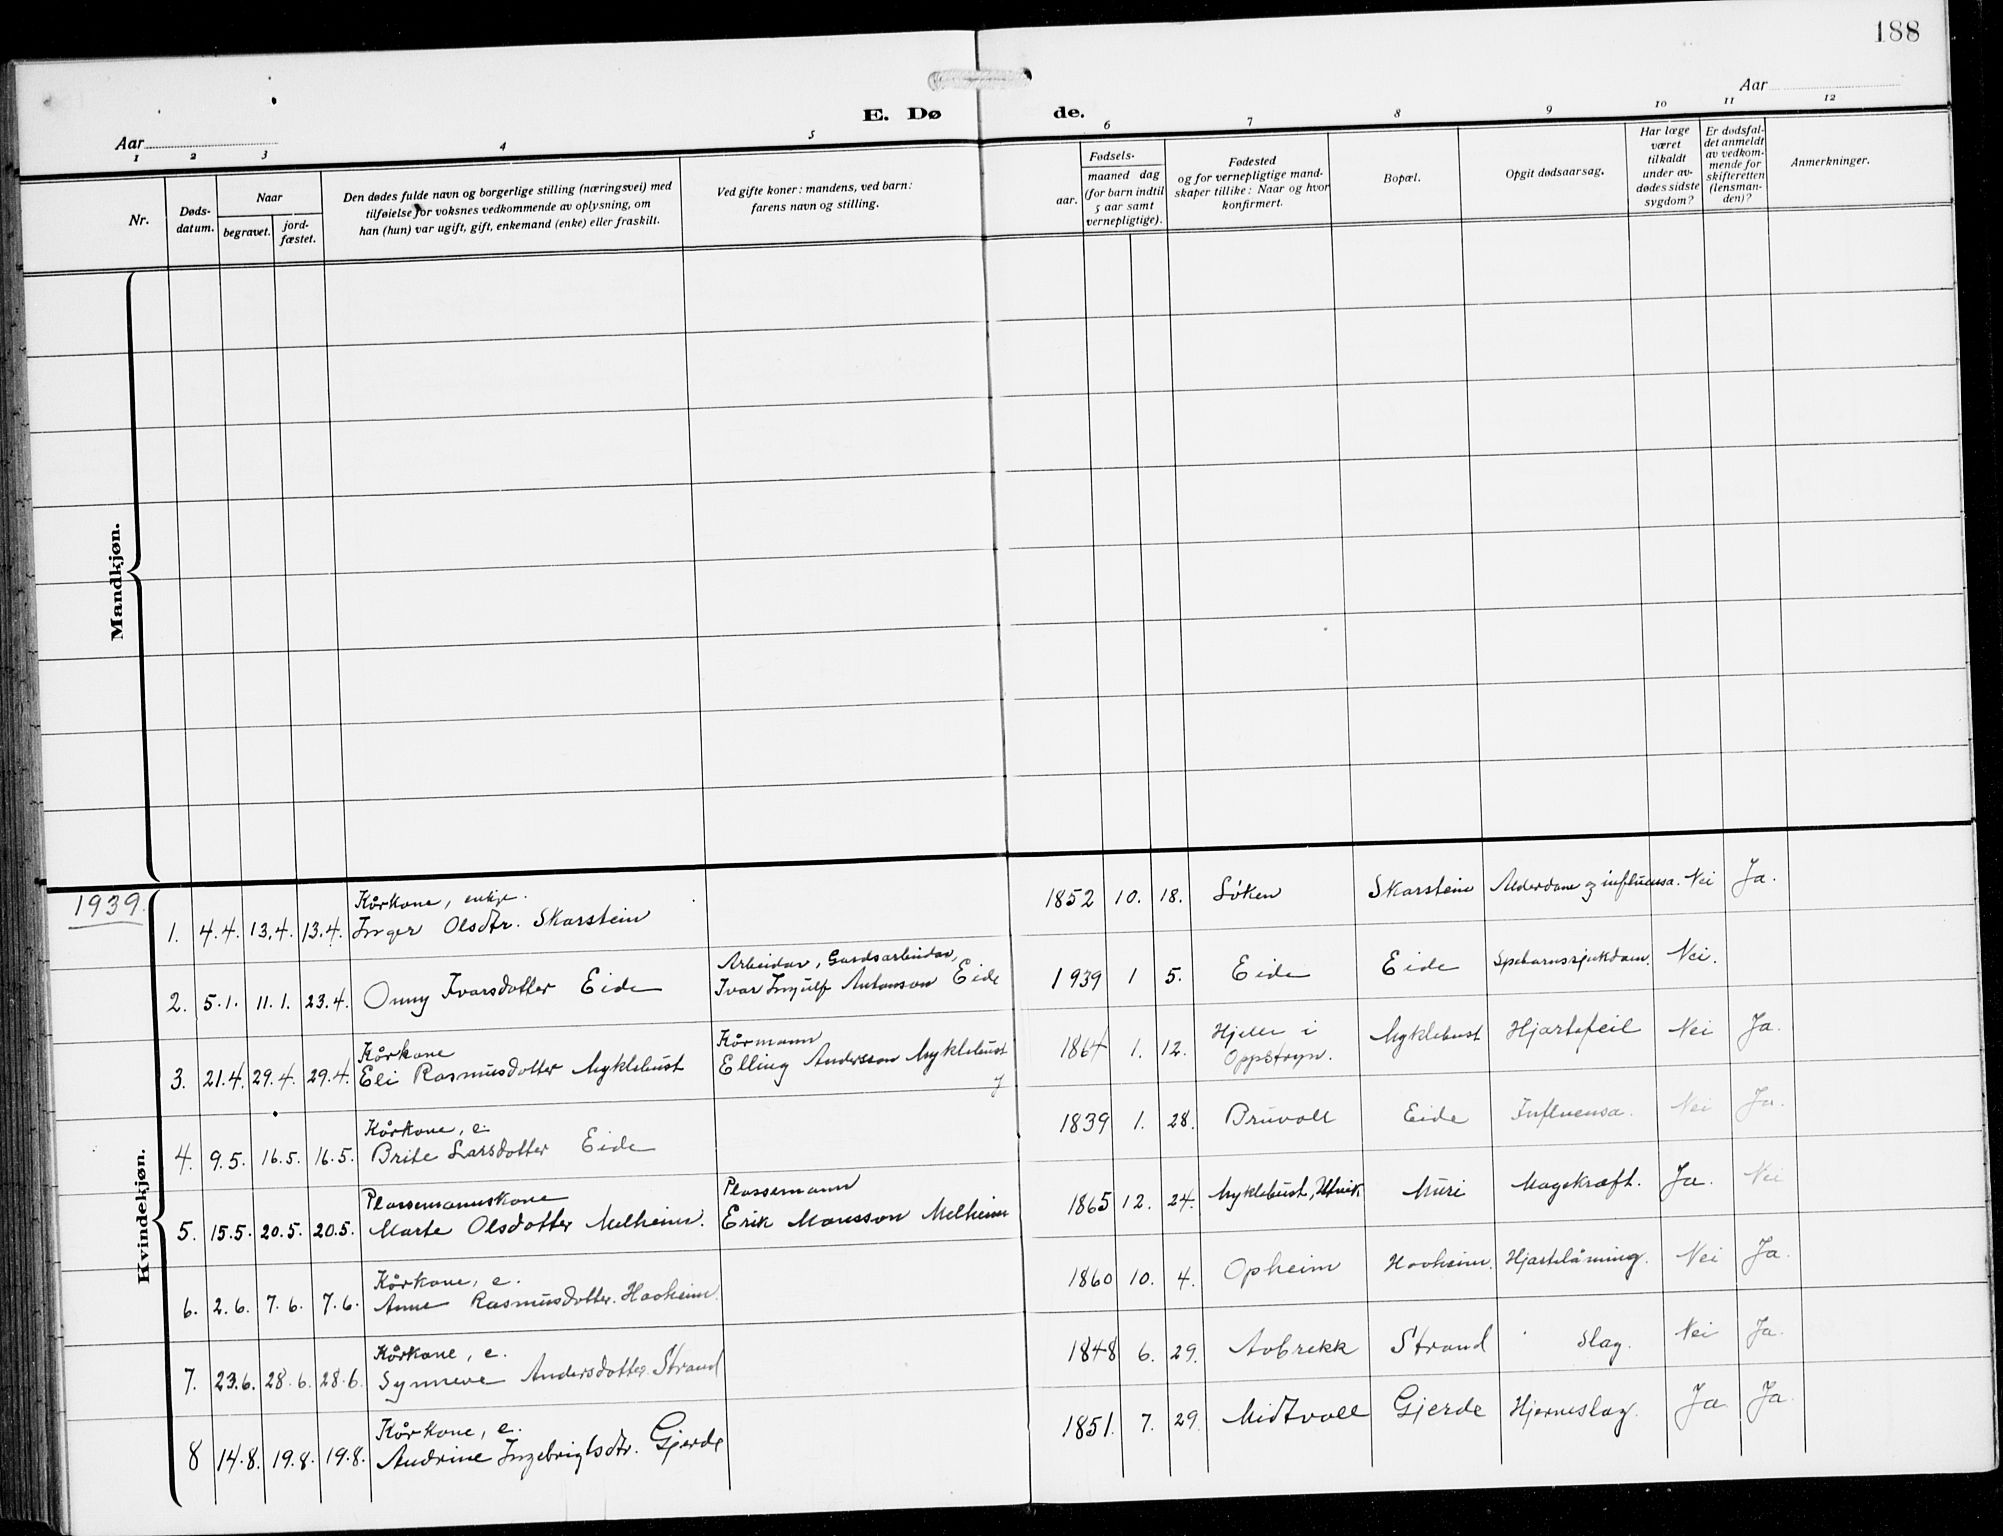 188
E. Døde.
Aar
Aar
1 2 3 4 5 6 7 8 9 10 11 12
Nr.
Døds-
datum.
Naar
begravet.
jord-
fæstet.
Den dødes fulde navn og borgerlige stilling (næringsvei) med
tilføielse for voksnes vedkommende av oplysning, om
han (hun) var ugift, gift, enkemand (enke) eller fraskilt.
Ved gifte koner: mandens, ved barn:
farens navn og stilling.
Fødsels-
aar.
maaned dag
(for barn indtil
5 aar samt
vernepligtige).
Fødested
og for vernepligtige mand-
skaper tillike: Naar og hvor
konfirmert.
Bopæl.
Opgit dødsaarsag.
Har læge
været
tilkaldt
under av-
dødes sidste
sygdom?
Er dødsfal-
det anmeldt
av vedkom-
mende for
skifteretten
(lensman-
den)?
Anmerkninger.
Mandkjøn.
Kvindekjøn.
1939.
Kårkone, enkje.
1. 4.4. 13.4. 13.4. Inger Olsdtr. Skarstein 1852 10. 18. Løken Skarstein Alderdom og influensa. Nei Ja.
Arbeidar, Gardsarbeidar,
2. 5.1. 11.1. 23.4. Onny Ivarsdotter Eide Ivar Ingulf Antonson Eide 1939 1 5. Eide Eide Spebarnssjukdom. Nei.
Kårkone Kårmann
3. 21.4. 29.4. 29.4. Eli Rasmusdotter Myklebust Elling Andersson Myklebust 1864 1. 12. Hjelle i Oppstryn. Myklebust Hjartefeil Nei Ja.
Kårkone, e.
4. 9.5. 16.5. 16.5. Brite Larsdotter Eide 1839 1. 28. Bruvoll Eide Influensa. Nei Ja.
Plassemannskone Plassemann
5. 15.5. 20.5. 20.5. Marte Olsdotter Melheim. Erik Monsson Melheim 1865 12. 24. Myklebust, Utvik Muri Magekræft. Ja. Nei
Kårkone, e.
6. 2.6. 7.6. 7.6. Anne Rasmusdotter Hovheim. 1860 10. 4. Opheim Hovheim. Hjartelåming. Nei Ja.
Kårkone, e.
7. 23.6. 28.6. 28.6. Synneve Andersdotter Strand 1848 6. 29. Aabrekk Strand Slag. Nei Ja.
Kårkone, e.
8 14.8. 19.8. 19.8. Andrine Ingebrigtsdtr. Gjerde 1851. 7. 29. Midtvoll Gjerde Hjerneslag. Ja Ja.